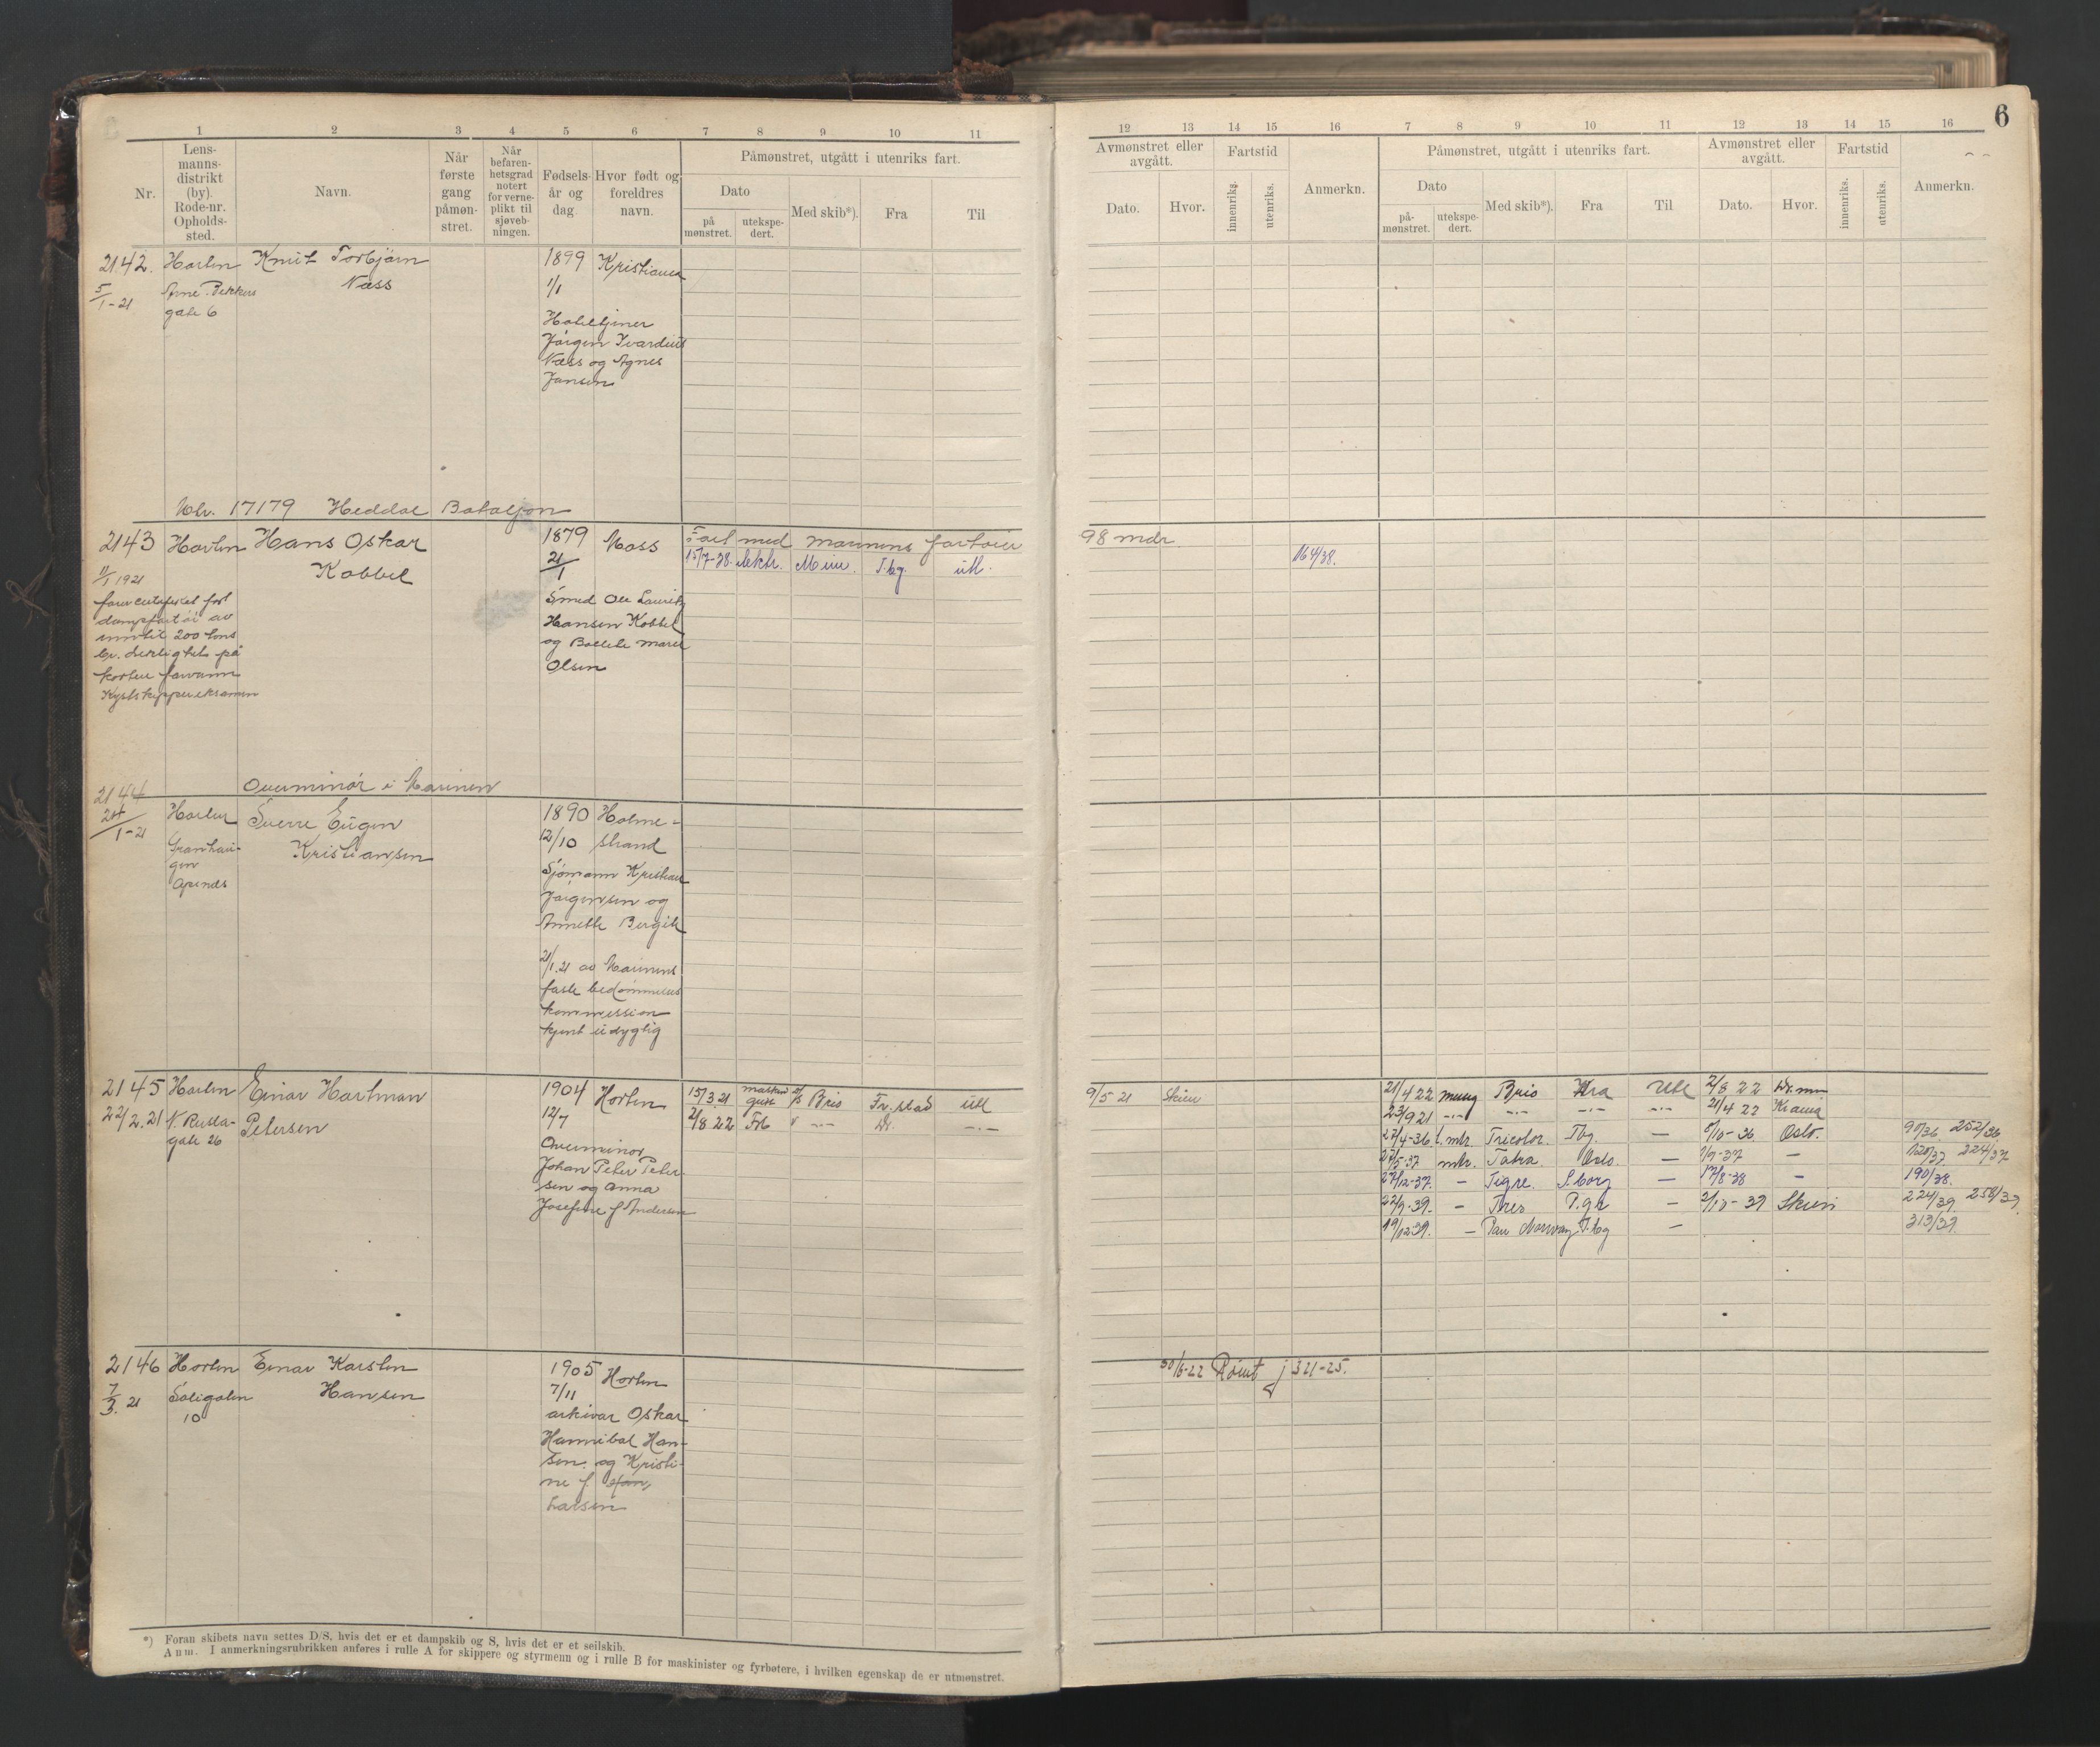 6
1 2 3 4 5 6 7 8 9 10 11
Nr.
Lens-
manns-
distrikt
(by).
Rode-nr.
Opholds-
sted.
Navn.
Når
første
gang
påmøn-
stret.
Når
befaren-
hetsgrad
notert
for verne-
plikt til
sjøveb-
ningen.
Fødsels-
år og
dag.
Hvor født og
foreldres
navn.
Påmønstret, utgått i utenriks fart.
Dato
på
mønstret.
utekspe-
dert.
Med skib*).
Fra
Til
12 13 14 15 16 7 8 9 10 11 12 13 14 15 16
Avmønstret eller
avgått.
Dato.
Hvor.
Fartstid
innenriks.
utenriks.
Anmerkn.
Påmønstret, utgått i utenriks fart.
Dato
på-
mønstret.
utekspe-
dert.
Med skib*).
Fra
Til
Avmønstret eller
avgått.
Dato.
Hvor.
Fartstid
innenriks.
utenriks.
Anmerkn.
2142. Horten Knut Torbjørn 1899 Kristiania
5/1-21 Næss 1/1
gate 6
Jørgen
Næss og Agnes
Jansen
17179 Heddal Bataljon
2143 Horten Hans Oskar 1879 Moss Fart med marinens fartøier 98 mdr
11/1 1921 Kobbel 21/1 15/7-38. Tbg. utl. 164/38.
Smed Ole
Hansen Kobbel
og marie
Olsen
200 tons
på
Kystskippereksamen
Overminør i Marinen
2144 Horten Sverre Eugen 1890 Holme-
24/1-21 Kristiansen 12/10 strand
Sjømann Kristian
Jørgensen og
Annette
21/1.21 av Marinens
faste bedømmelses
kommission
kjent udygtig
2145 Horten Einar Hartman 1904 Horten 15/3 21 Bris Fr.stad utl 9/5 21 Skien 21/4 22 Bris Kra Utl 2/8 22
22/2.21 Petersen 12/7 2/8 22 Frb -"- Dr. -"- 23/9 21 -"- -"- -"- -"- 21/4 22 Krania
gate 26
Overminør
Johan Peter Peter-
sen og Anna
Josefine f Andersen
27/4-36 Tricolor. Tbg. — 8/10-36 Oslo. 90/36. 252/36
27/5-37 mtr. Tatra. Oslo. — 7/9-37 — 120/37. 224/37
27/12-37. — Tigre. S.borg — 17/8-38 — 190/38.
22/9-39. — Thes P.gr — 2/10-39 Skien 224/39. 258/39.
19/12-39. — Pan Norway T.bg — 313/39.
2146 Horten Einar Karsten 1905 Horten 30/6-22 Rømt j 321-25.
7/3. 21 Hansen 7/11
10
arkivar Oskar
Hannibal Han-
sen. og Kristi-
ne f. Han,
Larsen
*) Foran skibets navn settes D/S, hvis det er et dampskib og S, hvis det er et seilskib.
Anm. I anmerkningsrubrikken anføres i rulle A for skippere og styrmenn og i rulle B for maskinister og fyrbøtere, i hvilken egenskap de er utmønstret.